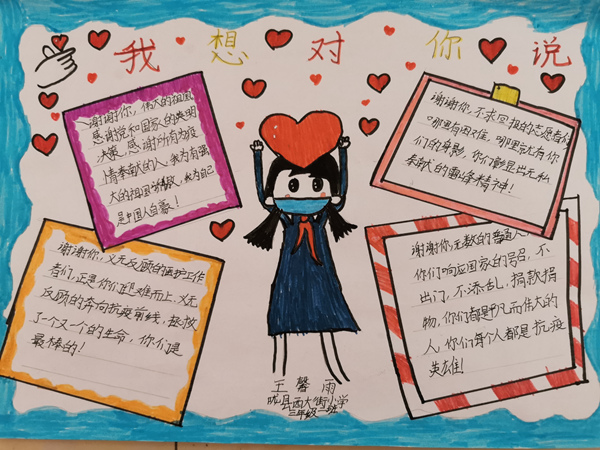 我想对你说
谢谢你，伟大的祖国
感谢党和国家的英明
决策，感谢所有为疫
情奉献的人，我为有强
大的祖国骄傲，我为自己
是中国人自豪！
谢谢你，不求回报的志愿者们
哪里有困难，哪里就有你
们的身影，你们彰显出无私
奉献的雷锋精神！
谢谢你，义无反顾的医护工作
者们，正是你们迎难而上，义无
反顾的奔向抗疫前线，拯救
了一个又一个的生命，你们是
最棒的！
谢谢你，无数的普通人，
你们响应国家的号召，不
出门，不添乱，捐款捐
物，你们都是平凡而伟大的
人，你们每个人都是抗疫
英雄！
王馨雨
陇县西大街小学
三年级二班